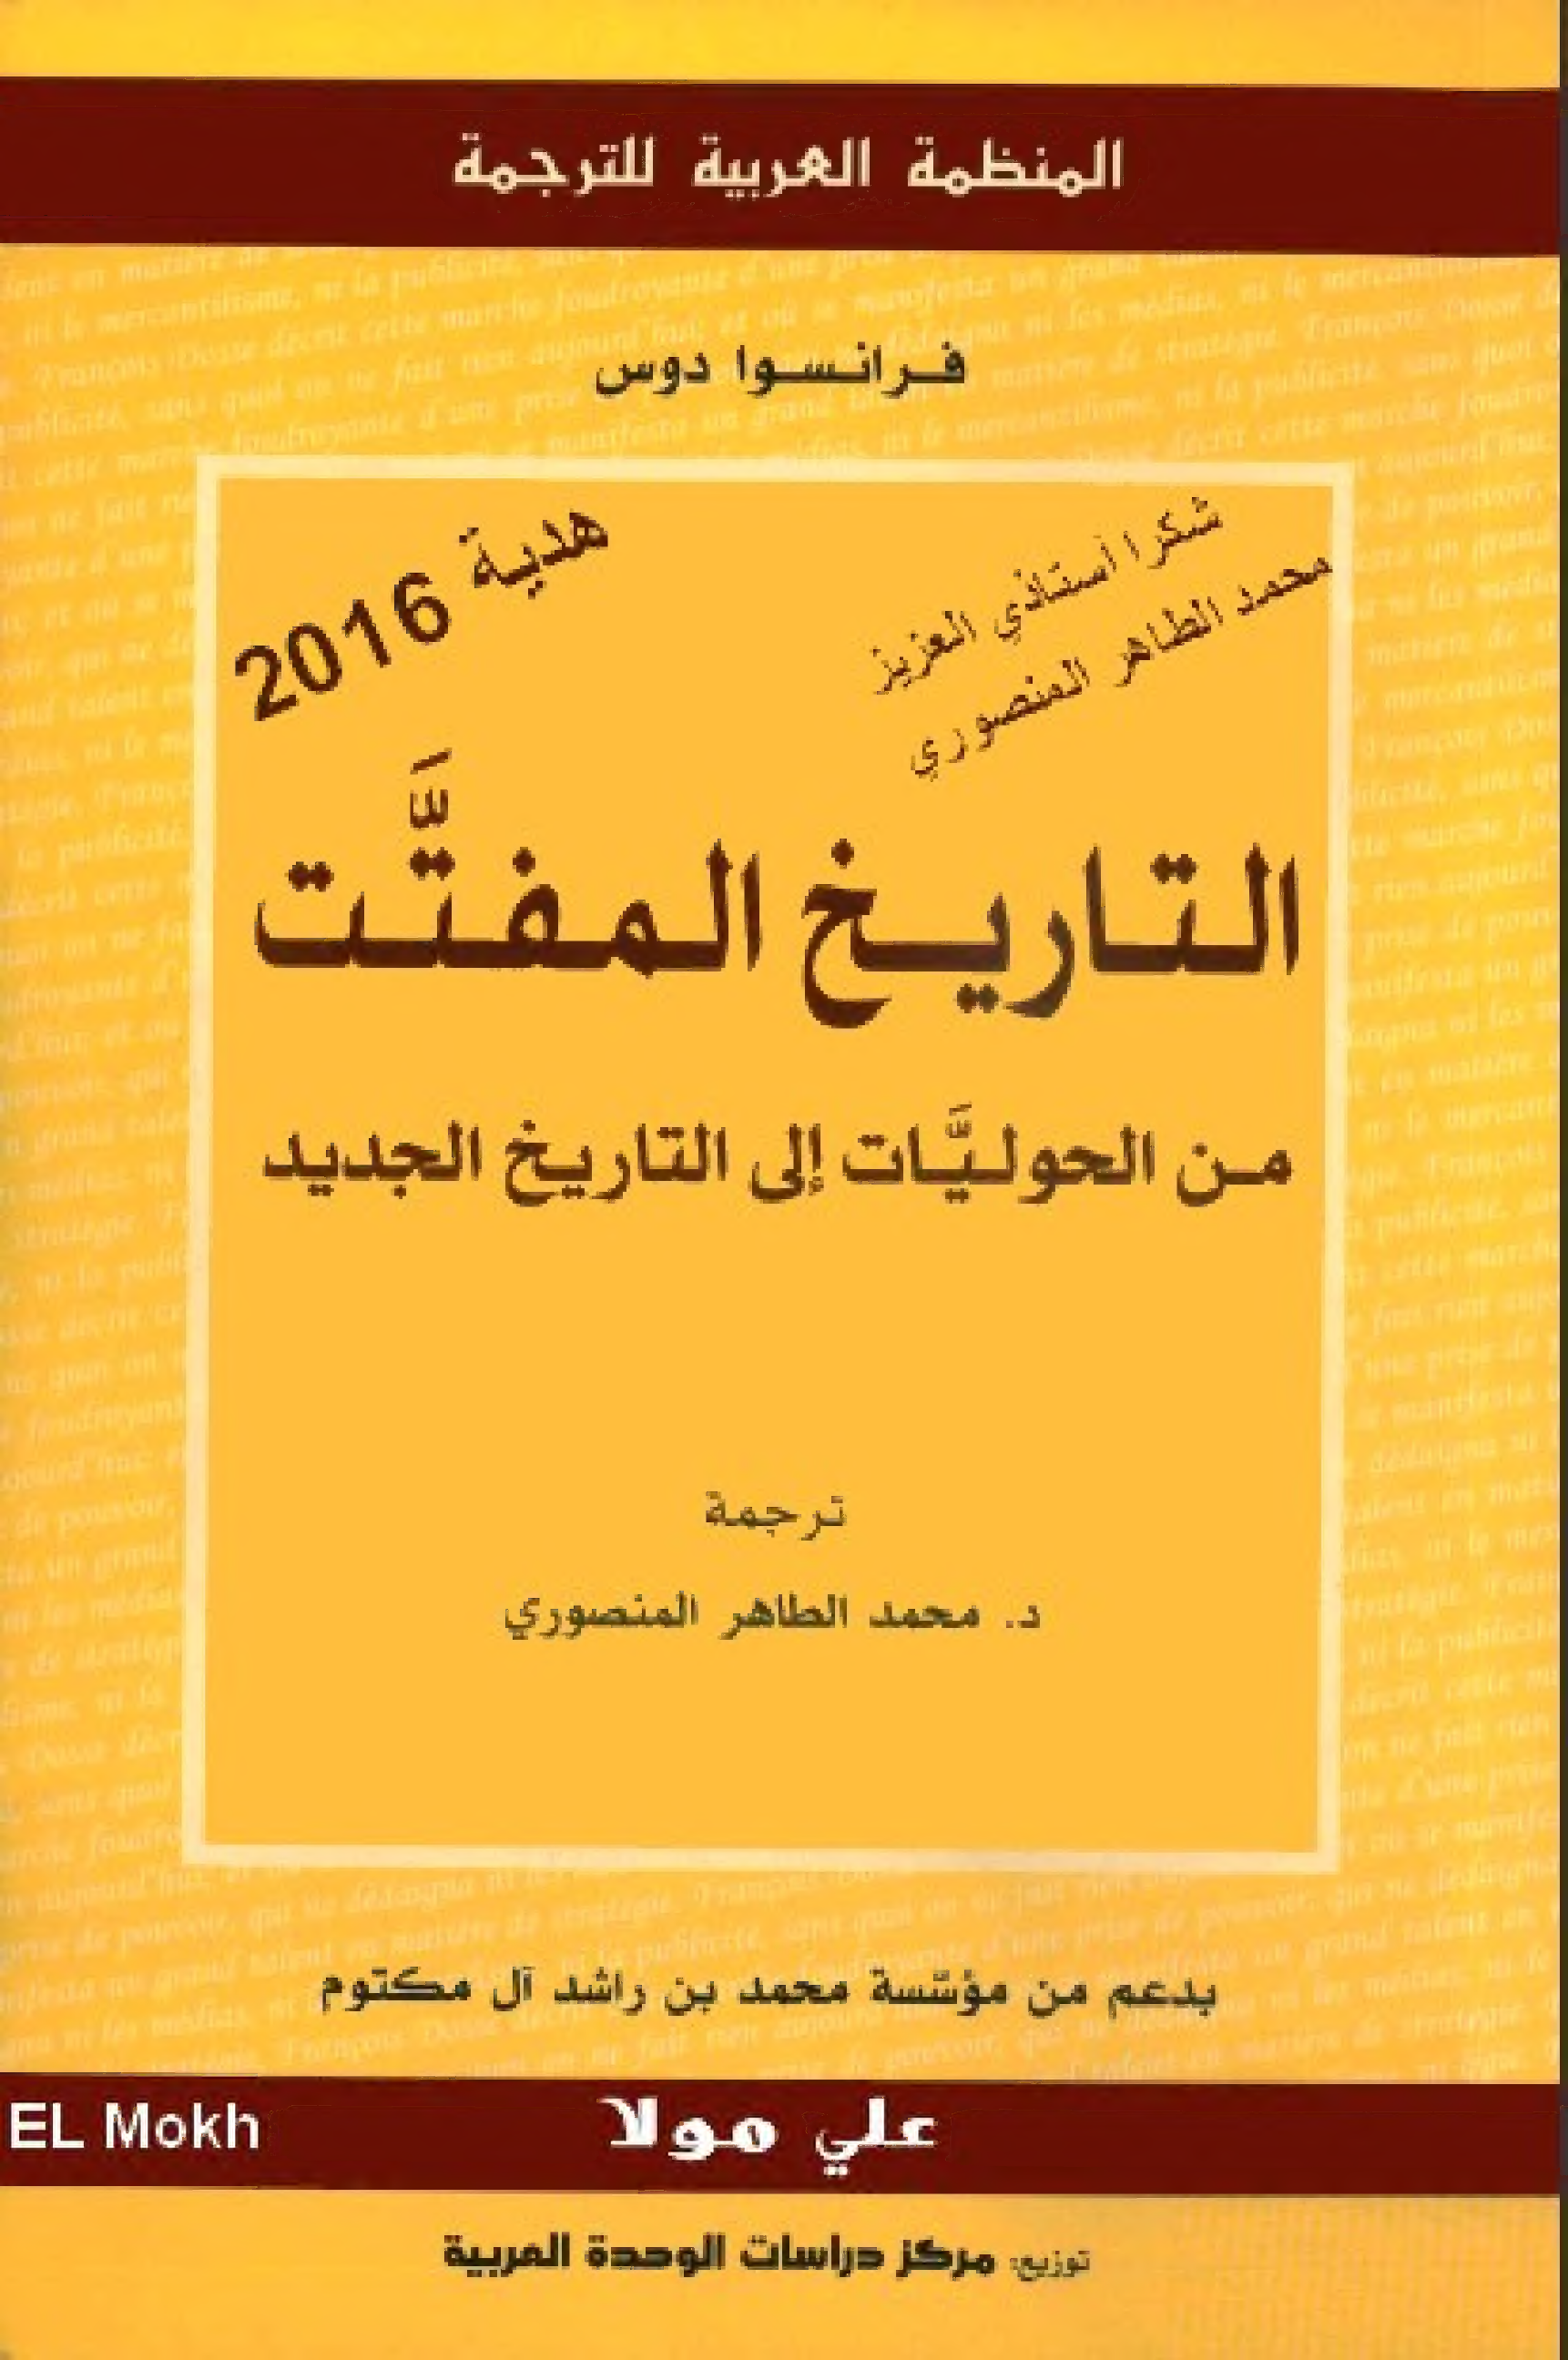 المنظمة العربية للترجمة
فرانسوا دوس
هدية 2016
شكرا أستاذي العزيز
محمد الطاهر المنصوري
التاريخ المفتَّت
من الحوليَّات إلى التاريخ الجديد
ترجمة
د. محمد الطاهر المنصوري
بدعم من مؤسّسة محمد بن راشد آل مكتوم
علي مولا
EL Mokh
توزيع: مركز دراسات الوحدة العربية